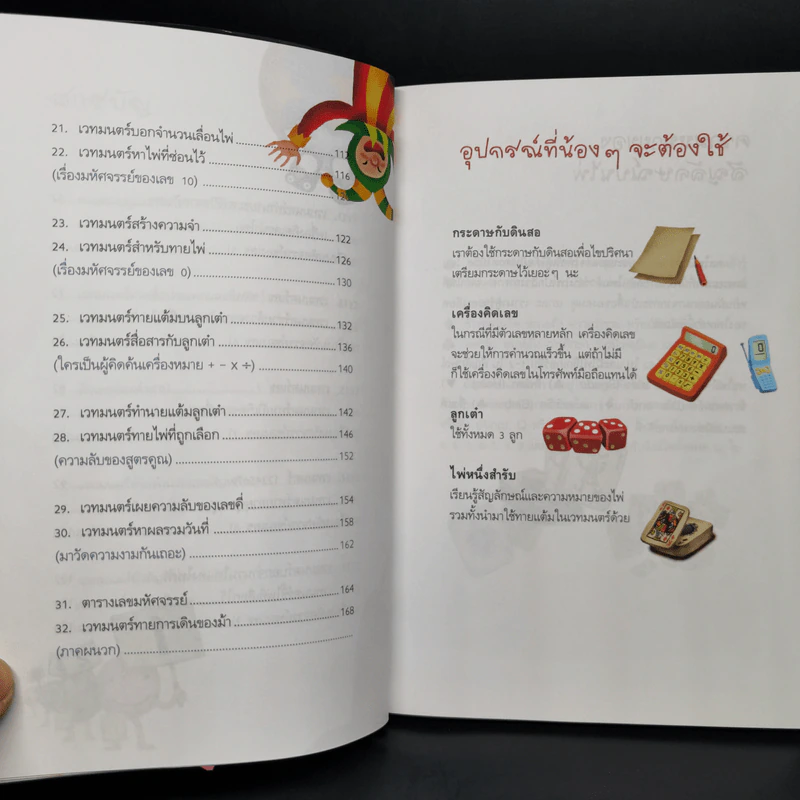 21. เวทมนตร์บอกจำนวนเลื่อนไพ่ 112
22. เวทมนตร์หาไพ่ที่ซ่อนไว้ 116
(เรื่องมหัศจรรย์ของเลข 10)
23. เวทมนตร์สร้างความจำ 122
24. เวทมนตร์สำหรับทายไพ่ 126
(เรื่องมหัศจรรย์ของเลข 0) 130
25. เวทมนตร์ทายแต้มบนลูกเต๋า 132
26. เวทมนตร์สื่อสารกับลูกเต๋า 136
(ใครเป็นผู้คิดค้นเครื่องหมาย + − x ÷) 140
27. เวทมนตร์ทำนายแต้มลูกเต๋า 142
28. เวทมนตร์ทายไพ่ที่ถูกเลือก 146
(ความลับของสูตรคูณ) 152
29. เวทมนตร์เผยความลับของเลขคี่ 154
30. เวทมนตร์หาผลรวมวันที่ 158
(มาวัดความงามกันเถอะ) 162
31. ตารางเลขมหัศจรรย์ 164
32. เวทมนตร์ทายการเดินของม้า 168
(ภาคผนวก)
อุปกรณ์ที่น้อง ๆ จะต้องใช้
กระดาษกับดินสอ
เราต้องใช้กระดาษกับดินสอเพื่อไขปริศนา
เตรียมกระดาษไว้เยอะ ๆ นะ
เครื่องคิดเลข
ในกรณีที่มีตัวเลขหลายหลัก เครื่องคิดเลข
จะช่วยให้การคำนวณเร็วขึ้น แต่ถ้าไม่มี
ก็ใช้เครื่องคิดเลขในโทรศัพท์มือถือแทนได้
ลูกเต๋า
ใช้ทั้งหมด 3 ลูก
ไพ่หนึ่งสำรับ
เรียนรู้สัญลักษณ์และความหมายของไพ่
รวมทั้งนำมาใช้ทายแต้มในเวทมนตร์ด้วย